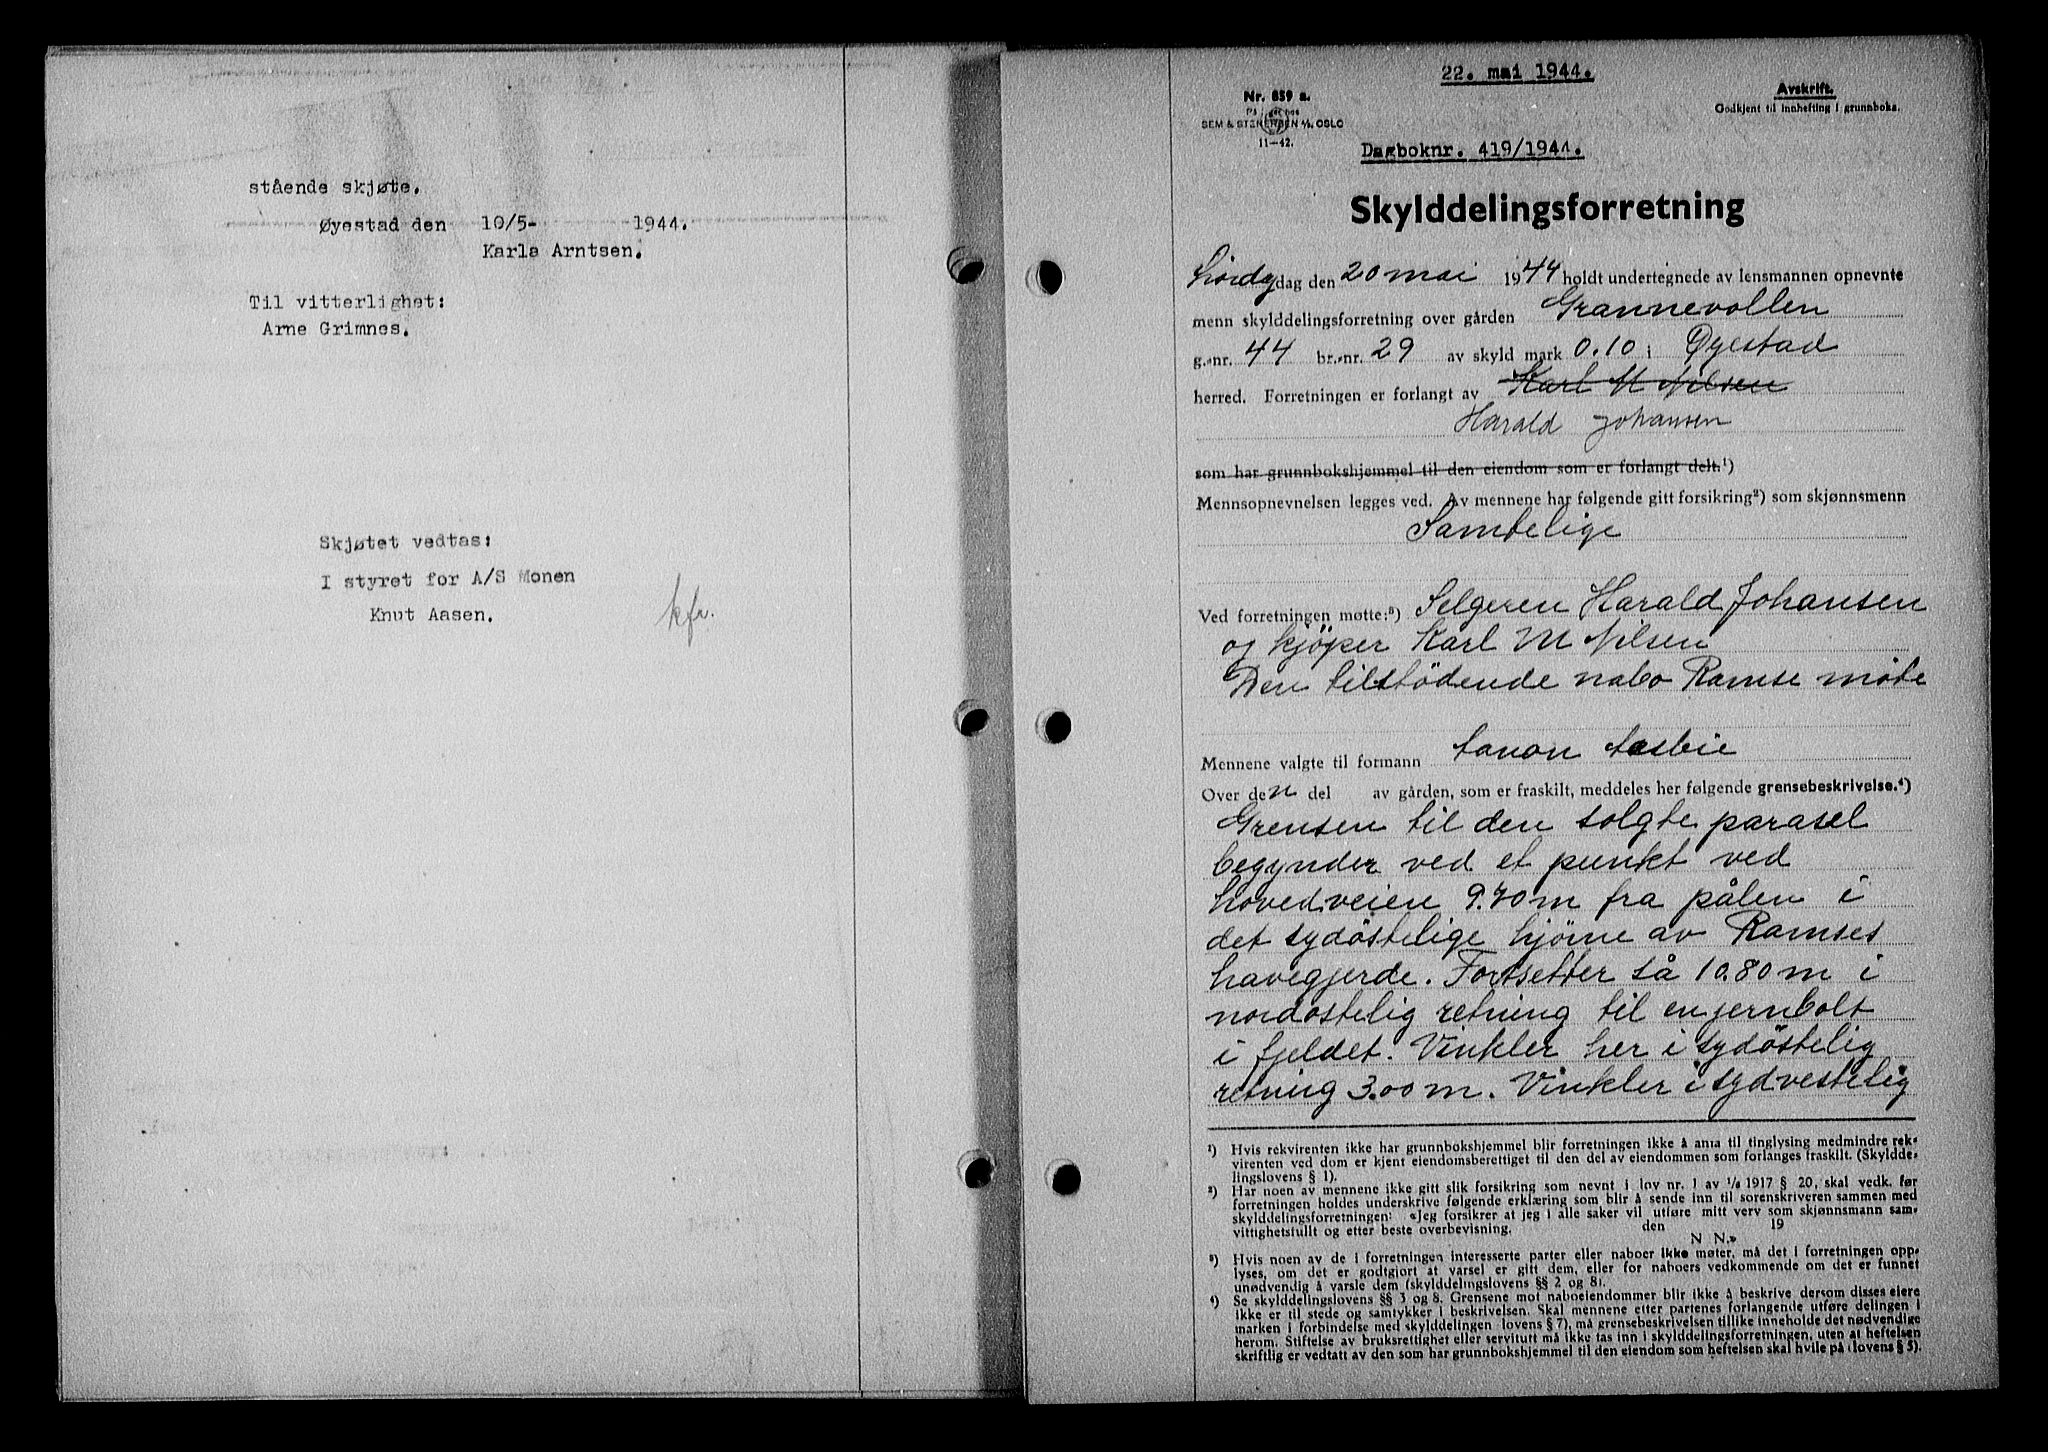 stående skjøte.
Øyestad den 10/5- 1944.
Karla Arntsen.
Til vitterlighet:
Arne Grimnes.
Skjøtet vedtas:
I styret for A/S Monen
Knut Aasen.
kfr.
22. mai 1944.
Nr. 859 a.
På lager hos
SEM & STENERSEN A/S OSLO
11-42.
Avskrift.
Godkjent til innhefting i grunnboka.
Dagboknr. 419/1944.
Skylddelingsforretning
Lørdag dag den 20 mai 1944 holdt undertegnede av lensmannen opnevnte
menn skylddelingsforretning over gården Grannevollen
g.-nr. 44 br.-nr. 29 av skyld mark 0.10 i Øyestad
herred. Forretningen er forlangt av Karl M Nilsen
Harald Johansen
som har grunnbokshjemmel til den eiendom som er forlangt delt.¹)
Mennsopnevnelsen legges ved. Av mennene har følgende gitt forsikring²) som skjønnsmenn
Samtelige
Ved forretningen møtte:³) Selgeren Harald Johansen
og kjöper Karl M Nilsen
Den tilstödende nabo Ramse møte
Mennene valgte til formann
Over den del av gården, som er fraskilt, meddeles her følgende grensebeskrivelse.⁴)
Grensen til den solgte parasel
begynder ved et punkt ved
hovedveien 9.70 m fra pålen i
det sydöstelige hjörne av Ramses
havegjerde. Fortsetter så 10.80 m i
nordostelig retning til en jernbolt
i fjeldet. Vinkler her i sydöstelig
retning 3.00 m. Vinkler i sydvestelig
¹) Hvis rekvirenten ikke har grunnbokshjemmel blir forretningen ikke å anta til tinglysing medmindre rek-
virenten ved dom er kjent eiendomsberettiget til den del av eiendommen som forlanges fraskilt. (Skyldde-
lingslovens § 1).
²) Har noen av mennene ikke gitt slik forsikring som nevnt i lov nr. 1 av 1/6 1917 § 20, skal vedk. før
forretningen holdes underskrive følgende erklæring som blir å sende inn til sorenskriveren sammen med
skylddelingsforretningen: «Jeg forsikrer at jeg i alle saker vil utføre mitt verv som skjønnsmann sam-
vittighetsfullt og etter beste overbevisning. den 19
N N.»
³) Hvis noen av de i forretningen interesserte parter eller naboer ikke møter, må det i forretningen opp-
lyses, om det er godtgjort at varsel er gitt dem, eller for naboers vedkommende om det er funnet
unødvendig å varsle dem (skylddelingslovens §§ 2 og 8).
⁴) Se skylddelingslovens §§ 3 og 8. Grensene mot naboeiendommer blir ikke å beskrive dersom disses eiere
ikke er til stede og samtykker i beskrivelsen. Skal mennene etter partenes forlangende utføre delingen i
marken i forbindelse med skylddelingen (lovens § 7), må grensebeskrivelsen tillike inneholde det nødvendige
herom. Stiftelse av bruksrettighet eller servitutt må ikke tas inn i skylddelingsforretningen, uten at heftelsen
skriftlig er vedtatt av den som har grunnbokshjemmel til den eiendom som heftelsen skal hvile på (lovens § 5).